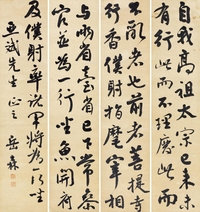 自我高祖太宗已来未
有行此而不理廢此而
不亂者也前者菩提寺
行香僕射指麾宰相
与兩省臺省已下常參
官並為一行坐魚開府
及僕射率諸軍將為一行坐
先生 正之 岳森